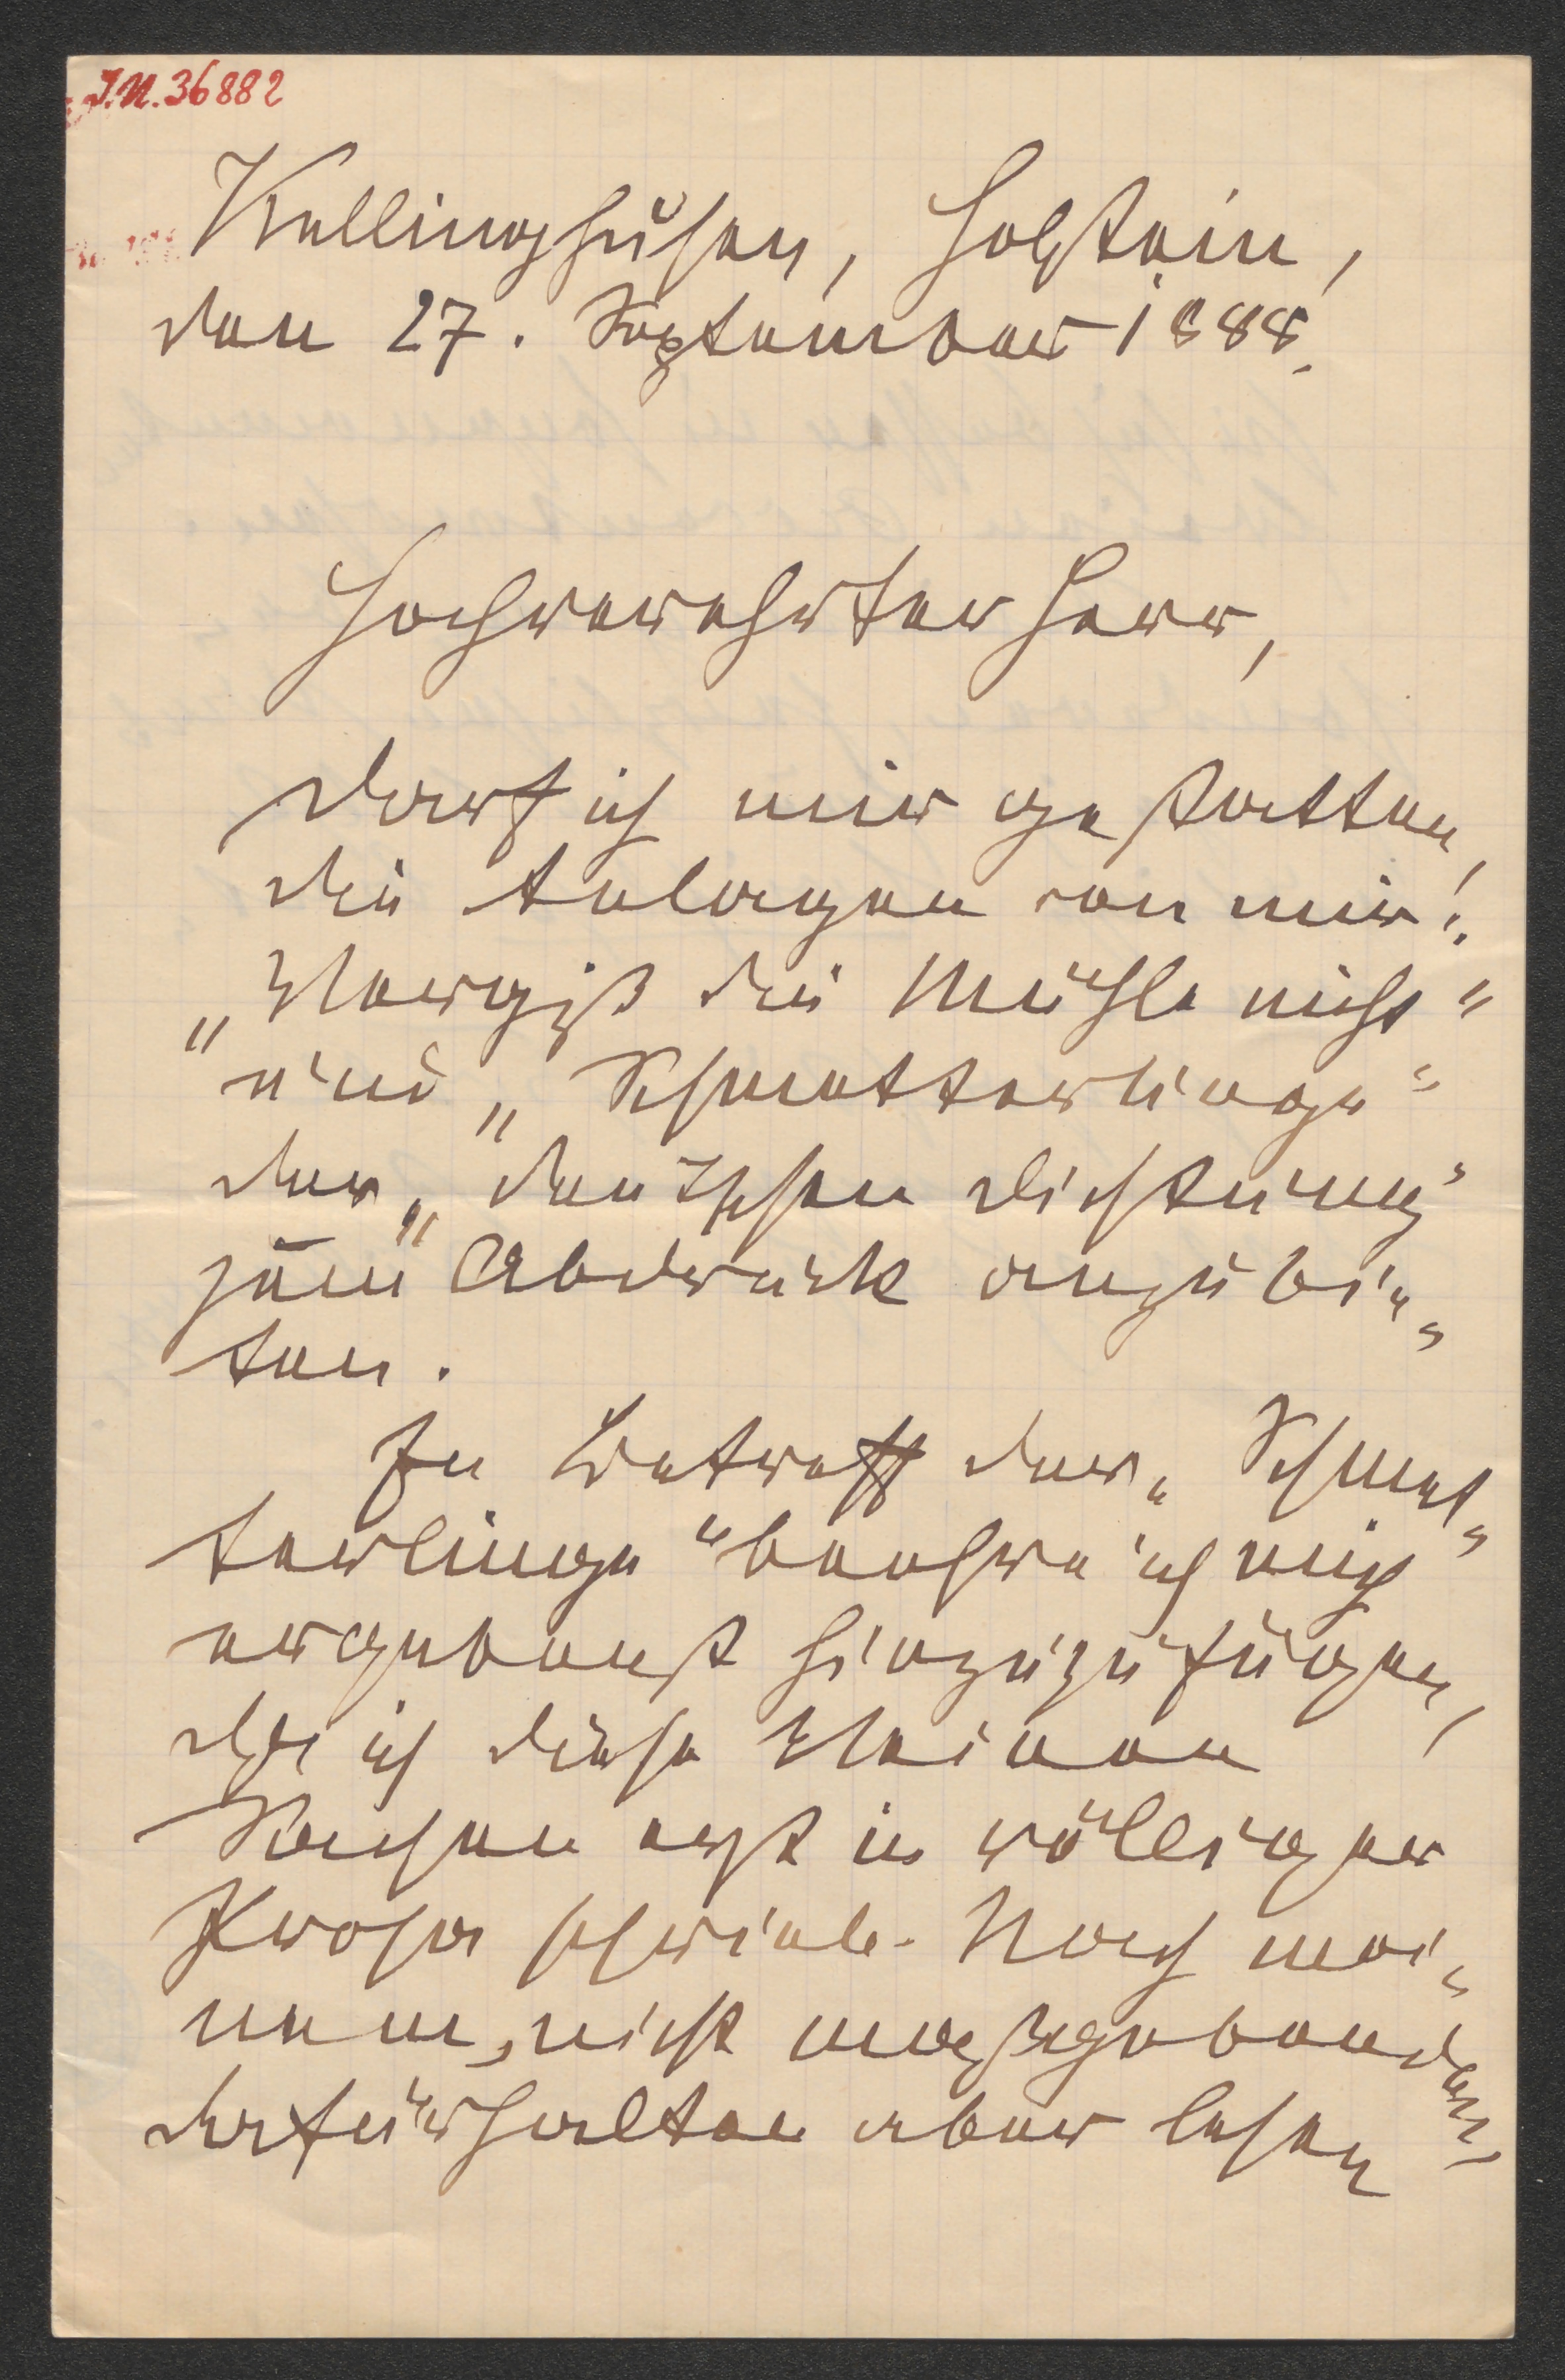 J.N. 36882
Kellinghusen, Holstein,
den 27. September 1888.
Hochverehrter Herr,
darf ich mir gestatten,
die Anlagen von mir:
„Vergiß die Mühle nicht“
und „Schmetterlinge“
der „deutschen Dichtung“
zum Abdruck anzubie„
ten.
In Betreff der „Schmet„
terlinge“ beehre ich mich
ergebenst hinzuzufügen,
daß ich diese kleinen
Sachen erst in völliger
Prosa schrieb. Nach mei„
nem, nicht maßgebenden,
dafürhalten aber lesen